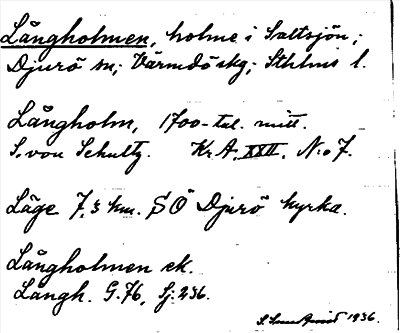 Långholmen, holme i Saltsjön,;
Djurö sn; Värmdö skg; Sthlms l.
Långholm, 1700-tal. mitt.
S. von Schultz. Kr.A. XXII. No 7.
Läge 7,3 km. SÖ Djurö kyrka.
Långholmen ek.
Långh. G.76, Sj. 236.
1936.